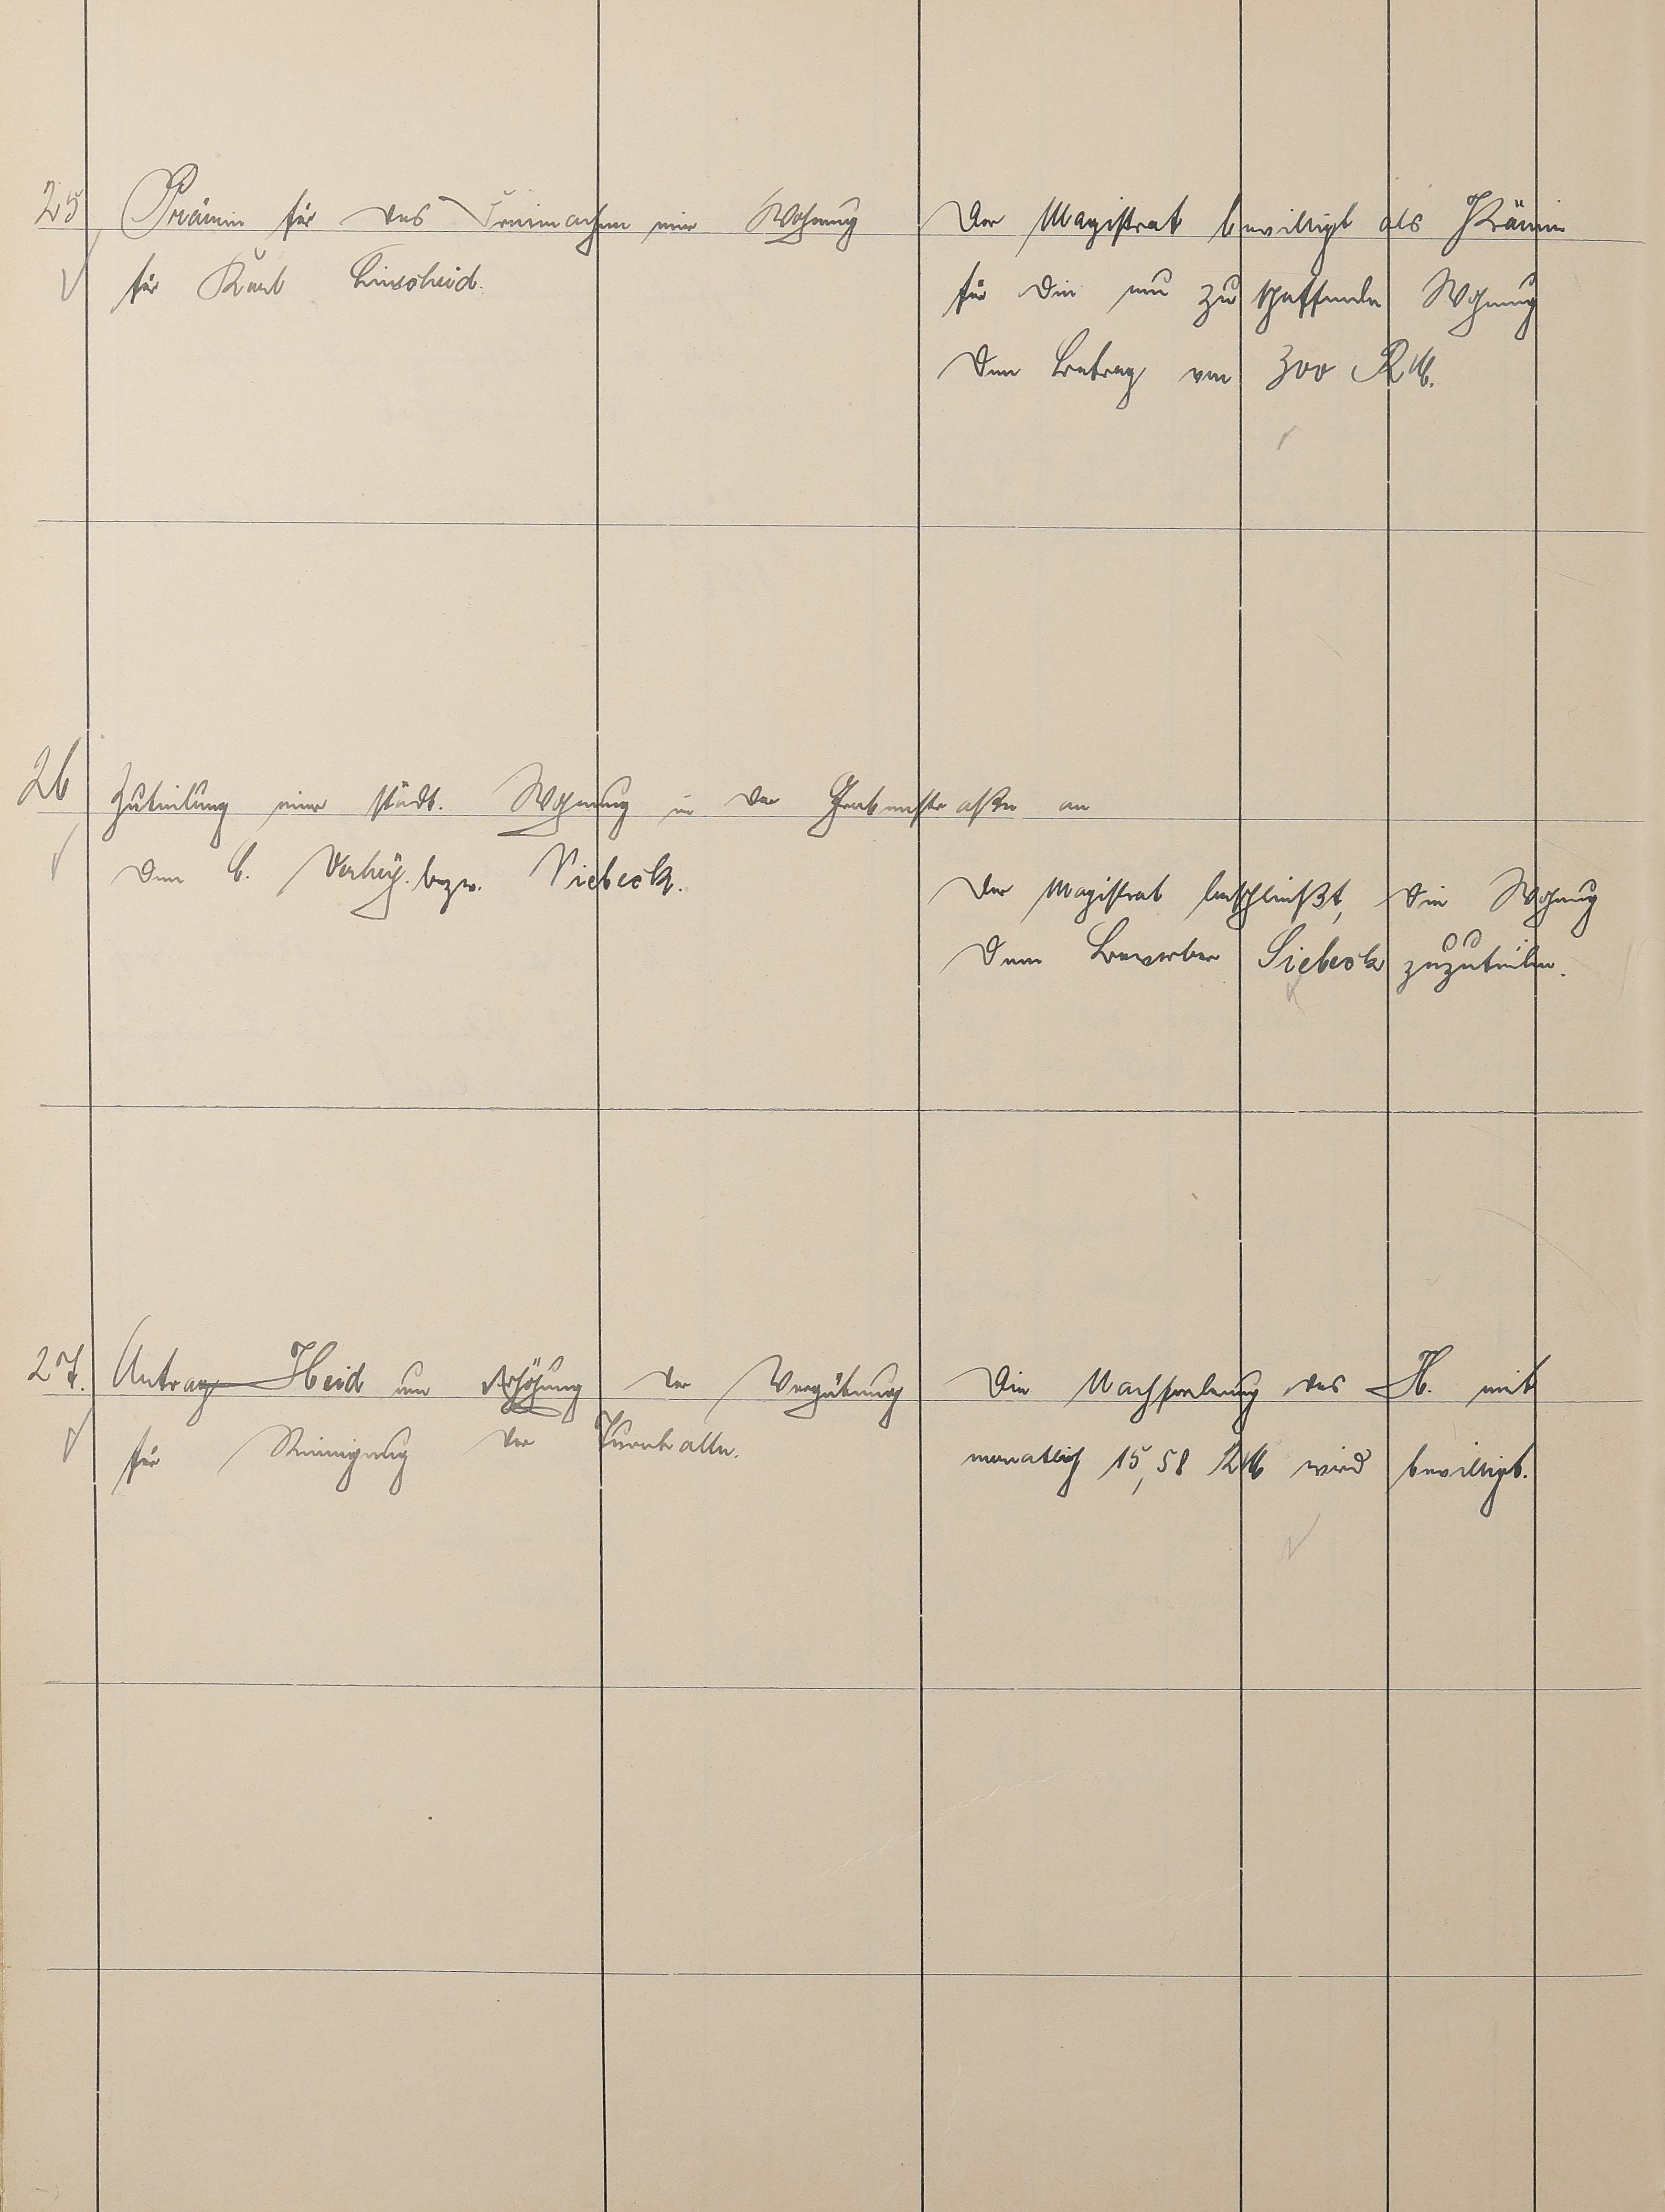 25 Prämie für das Freimachen einer Wohnung
für Karl Linscheid.
Der Magistrat bewilligt als Prämie
für die neu zu schaffende Wohnung
den Betrag von 300 RM.
26 Zuteilung einer städt. Wohnung in der Grabenstraße an
den bezw. Siebeck.
Der Magistrat beschließt, die Wohnung
dem Bewerber Siebeck zuzuteilen.
27. Antrag Heid um Erhöhung der Vergütung
für Reinigung der Turnhalle.
Die Nachforderung des H. mit
monatlich 15,58 RM wird bewilligt.